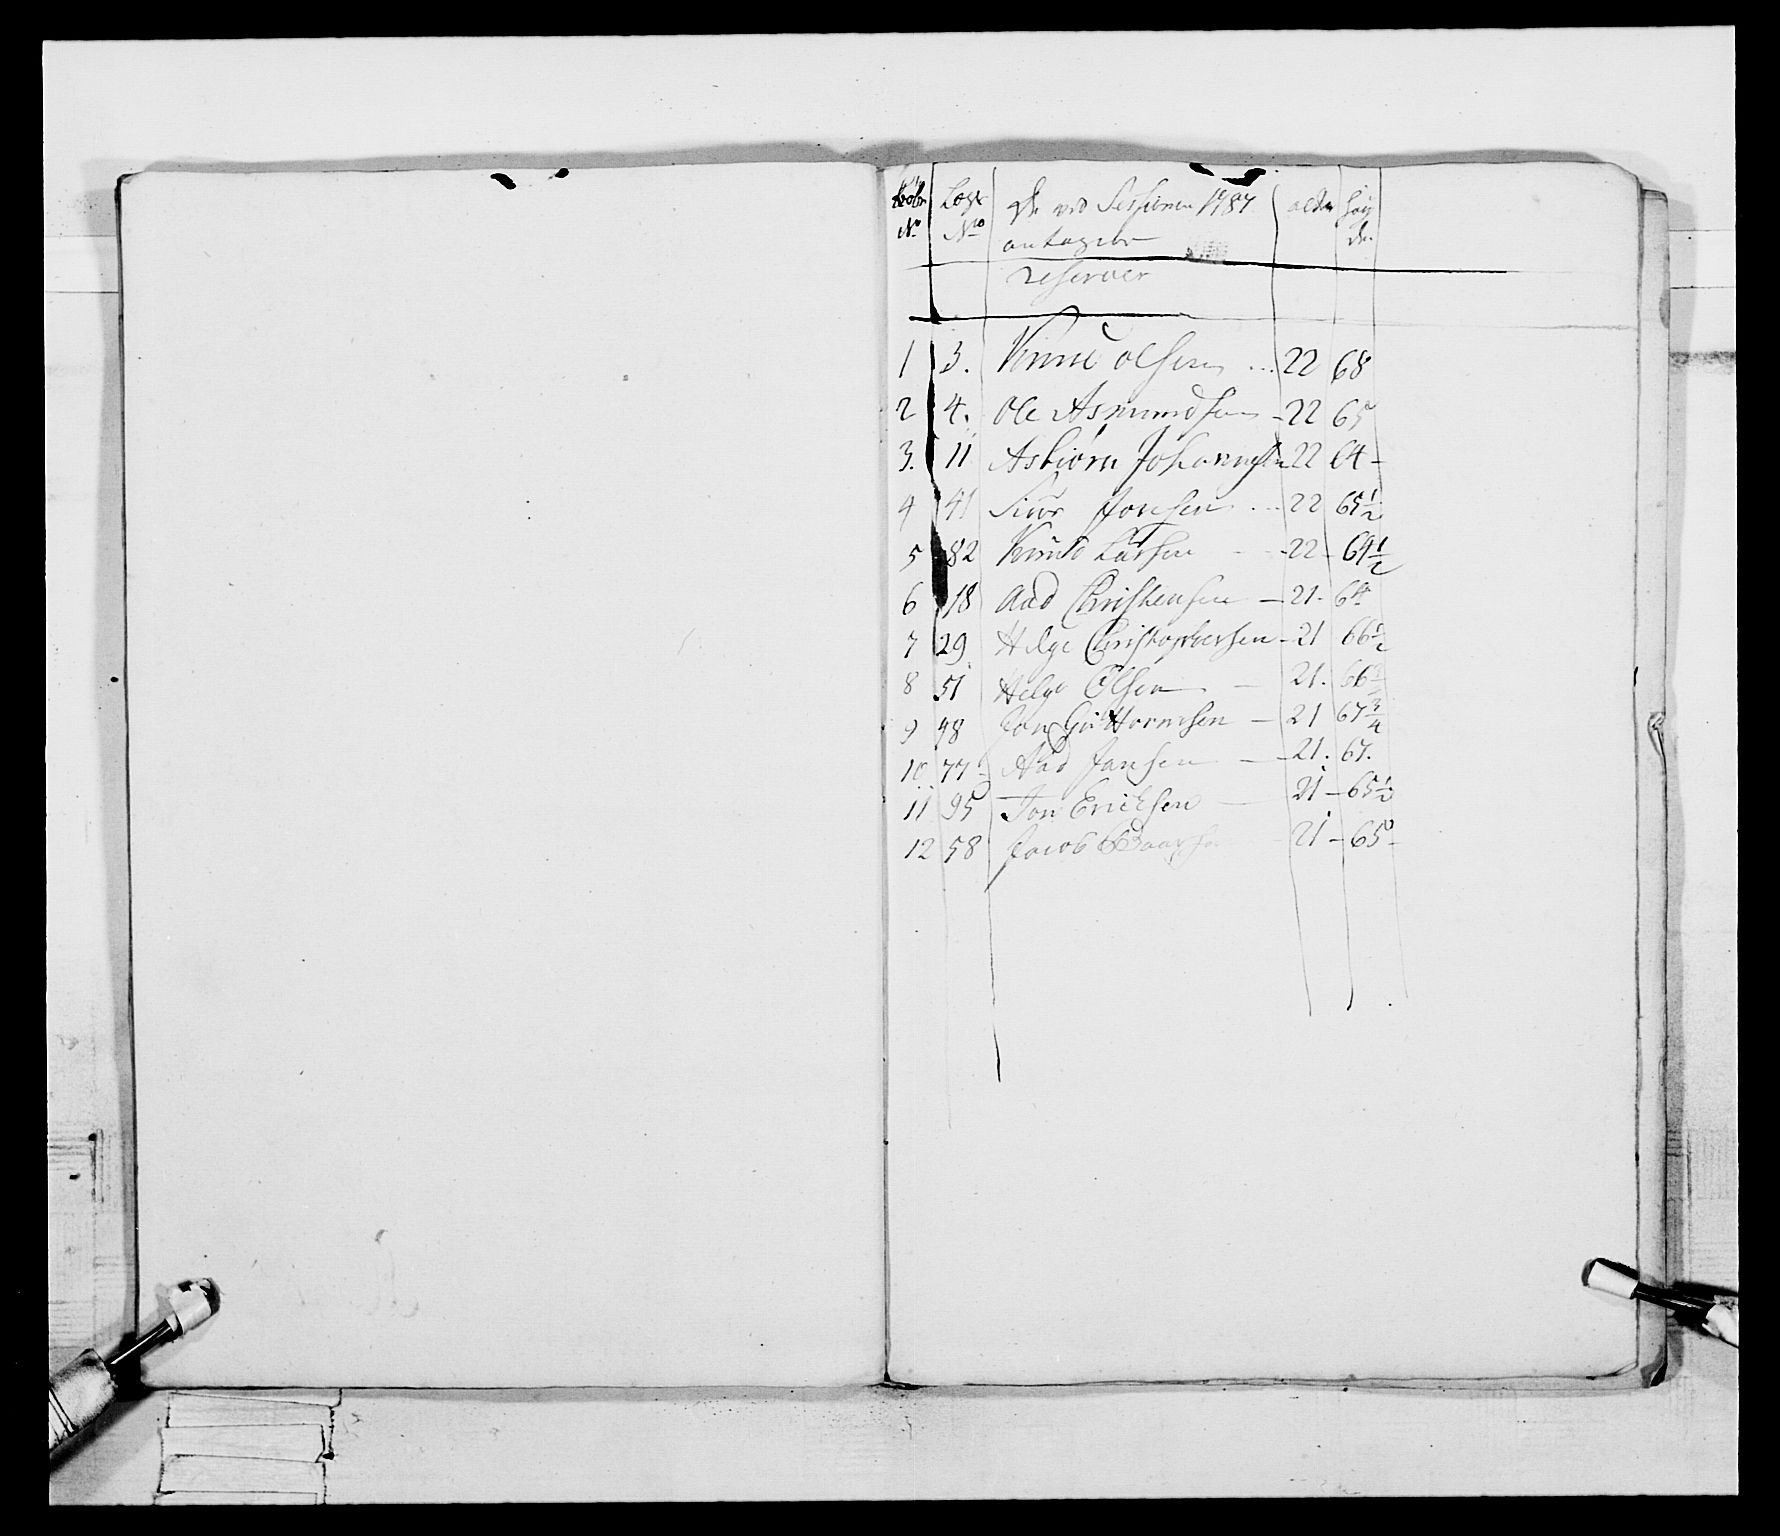 Løbe Lægs De ved Sessionen 1787 alder høy
No No antagne de
reserver
1 3. Knud Olsen ... 22 68
2 4. Ole Asmundsen - 22 65
3. 11 Asbiörn Johannesen 22 64 -
4 41 Siur Jonsen ... 22 65 1/2
5 82 Knud Larsen - - 22 - 64 1/2
6 18 Aad Christensen - 21. 64
7 29 Helge Christophersen - 21 66 1/2
8 51 Helge Olsen - 21. 66
9 98 Jon Guttormsen - 21 67 3/4
10 77 Aad Jansen - 21. 67.
11 95 Jon Ericksen - 21 - 65 1/2
12 58 Jacob 21 - 65 -